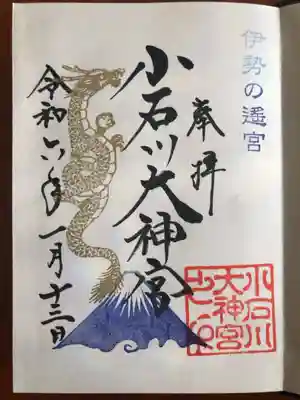 伊勢の遥宮
奉拝
小石川大神宮
令和六年一月十三日
小石川
大神宮